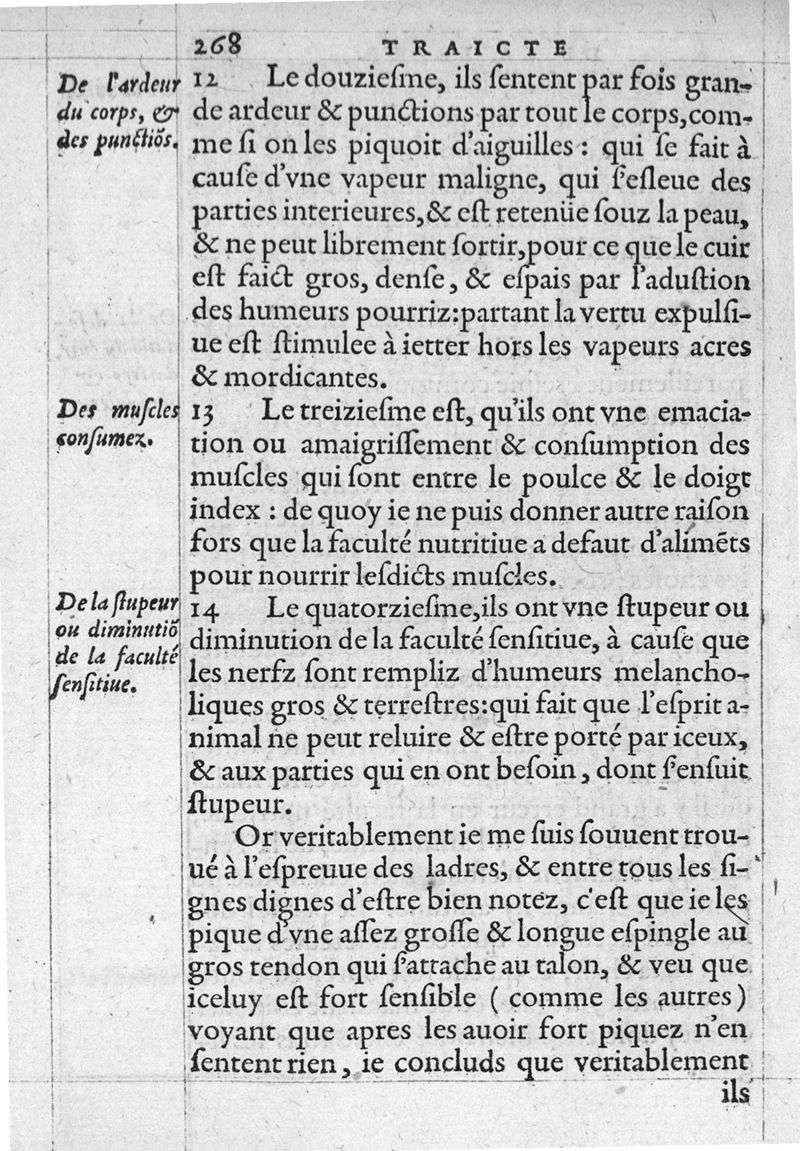 268 TRAICTE
De l'ardeur
du corps, &
des punctiõs.
12 Le douzieſme, ils ſentent par fois gran-
de ardeur & punctions par tout le corps, com-
me ſi on les piquoit d'aiguilles : qui ſe fait à
cauſe d'vne vapeur maligne, qui ſ'eſleue des
parties interieures, & eſt retenüe ſouz la peau,
& ne peut librement ſortir, pour ce que le cuir
eſt faict gros, denſe, & eſpais par l'aduſtion
des humeurs pourriz: partant la vertu expulſi-
ue eſt ſtimulee à ietter hors les vapeurs acres
& mordicantes.
Des muſcles
conſumez.
13 Le treizieſme eſt, qu'ils ont vne emacia-
tion ou amaigriſſement & conſumption des
muſcles qui ſont entre le poulce & le doigt
index : de quoy ie ne puis donner autre raiſon
fors que la faculté nutritiue a defaut d'alimẽts
pour nourrir leſdicts muſcles.
De la ſtupeur
ou diminutiõ
de la faculté
ſenſitiue.
14 Le quatorzieſme, ils ont vne ſtupeur ou
diminution de la faculté ſenſitiue, à cauſe que
les nerfz ſont rempliz d'humeurs melancho-
liques gros & terreſtres: qui fait que l'eſprit a-
nimal ne peut reluire & eſtre porté par iceux,
& aux parties qui en ont beſoin, dont ſ'enſuit
ſtupeur.
Or veritablement ie me ſuis ſouuent trou-
ué à l'eſpreuue des ladres, & entre tous les ſi-
gnes dignes d'eſtre bien notez, c'eſt que ie les
pique d'vne aſſez groſſe & longue eſpingle au
gros tendon qui ſ'attache au talon, & veu que
iceluy eſt fort ſenſible ( comme les autres )
voyant que apres les auoir fort piquez n'en
ſentent rien, ie concluds que veritablement
ils